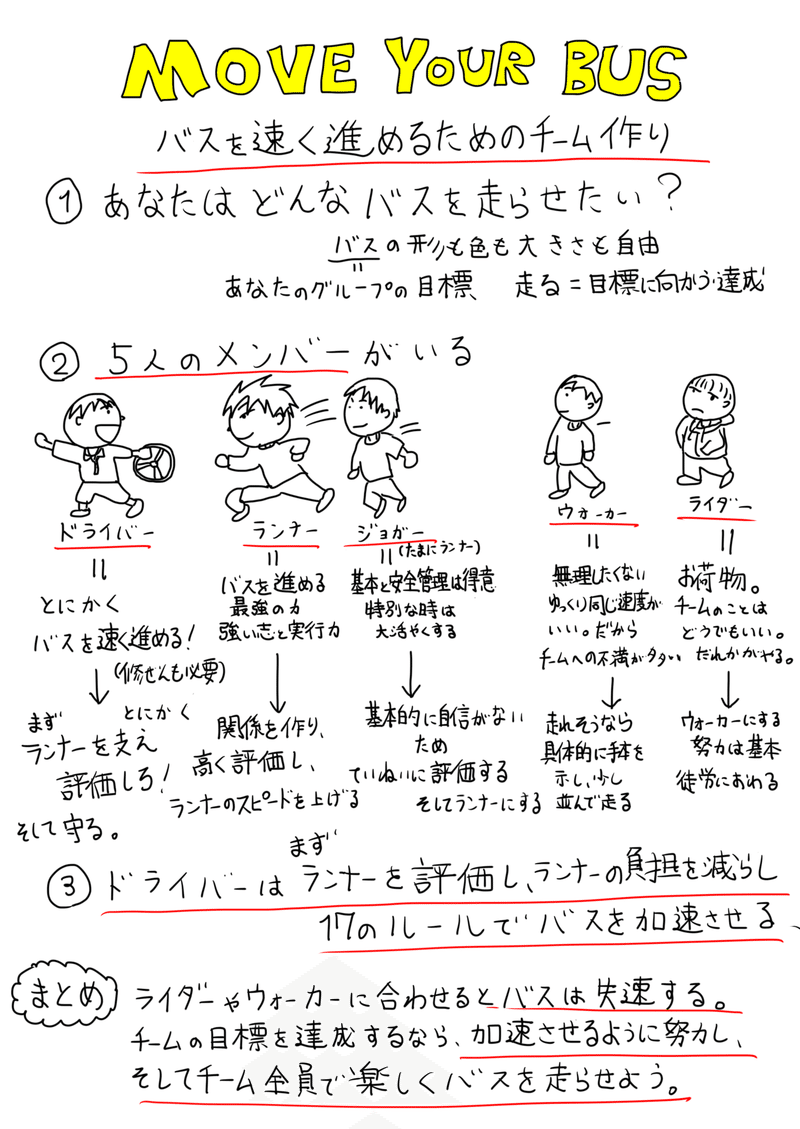 MOVE YOUR BUS
バスを速く進めるためのチーム作り
① あなたは どんな バスを走らせたい？
バスの形も色も大きさも自由
＝
あなたのグループの目標　走る＝目標に向かう・達成
② 5人のメンバーがいる
ドライバー
＝
とにかく
バスを速く進める！
(修ぜんも必要)
↓
まず とにかく
ランナーを支え
評価しろ！
そして守る。
ランナー
＝
バスを進める
最強の力
強い志と実行力
↓
関係を作り、
高く評価し、
ランナーのスピードを上げる
ジョガー
＝(たまにランナー)
基本と安全管理は得意
特別な時は
大活やくする
↓
基本的に自信がない
ため
ていねいに評価する
そしてランナーにする
ウォーカー
＝
無理したくない
ゆっくり同じ速度が
いい。だから
チームへの不満がタタい
↓
走れそうなら
具体的に手本を
示し、少し
並んで走る
ライダー
＝
お荷物。
チームのことは
どうでもいい。
だれかがやる。
↓
ウォーカーにする
努力は基本
徒労におわる
まず
③ ドライバーは ランナーを評価し、ランナーの負担を減らし
17のルールでバスを加速させる、
まとめ
ライダーやウォーカーに合わせるとバスは失速する。
チームの目標を達成するなら、加速させるように努力し、
そしてチーム全員で楽しくバスを走らせよう。